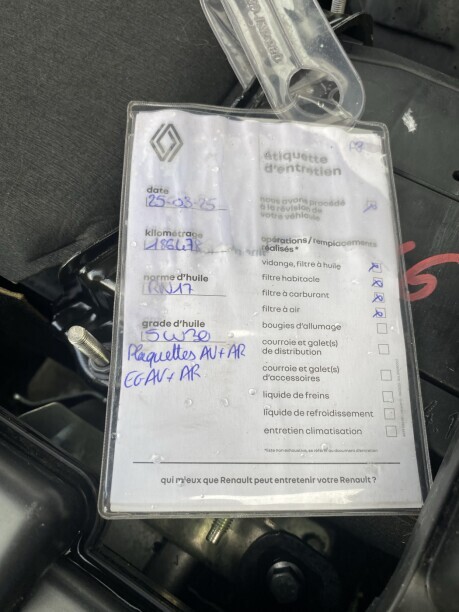 étiquette
d'entretien
date
25-03-25
nous avons procédé
à la révision de
votre véhicule
kilométrage
opérations / remplacements
réalisés*
norme d'huile
RN17
vidange, filtre à huile
filtre habitacle
filtre à carburant
filtre à air
grade d'huile
5W30
bougies d'allumage
Plaquettes AV + AR
courroie et galet(s)
de distribution
EG AV + AR
courroie et galet(s)
d'accessoires
liquide de freins
liquide de refroidissement
entretien climatisation
qui mieux que Renault peut entretenir votre Renault ?